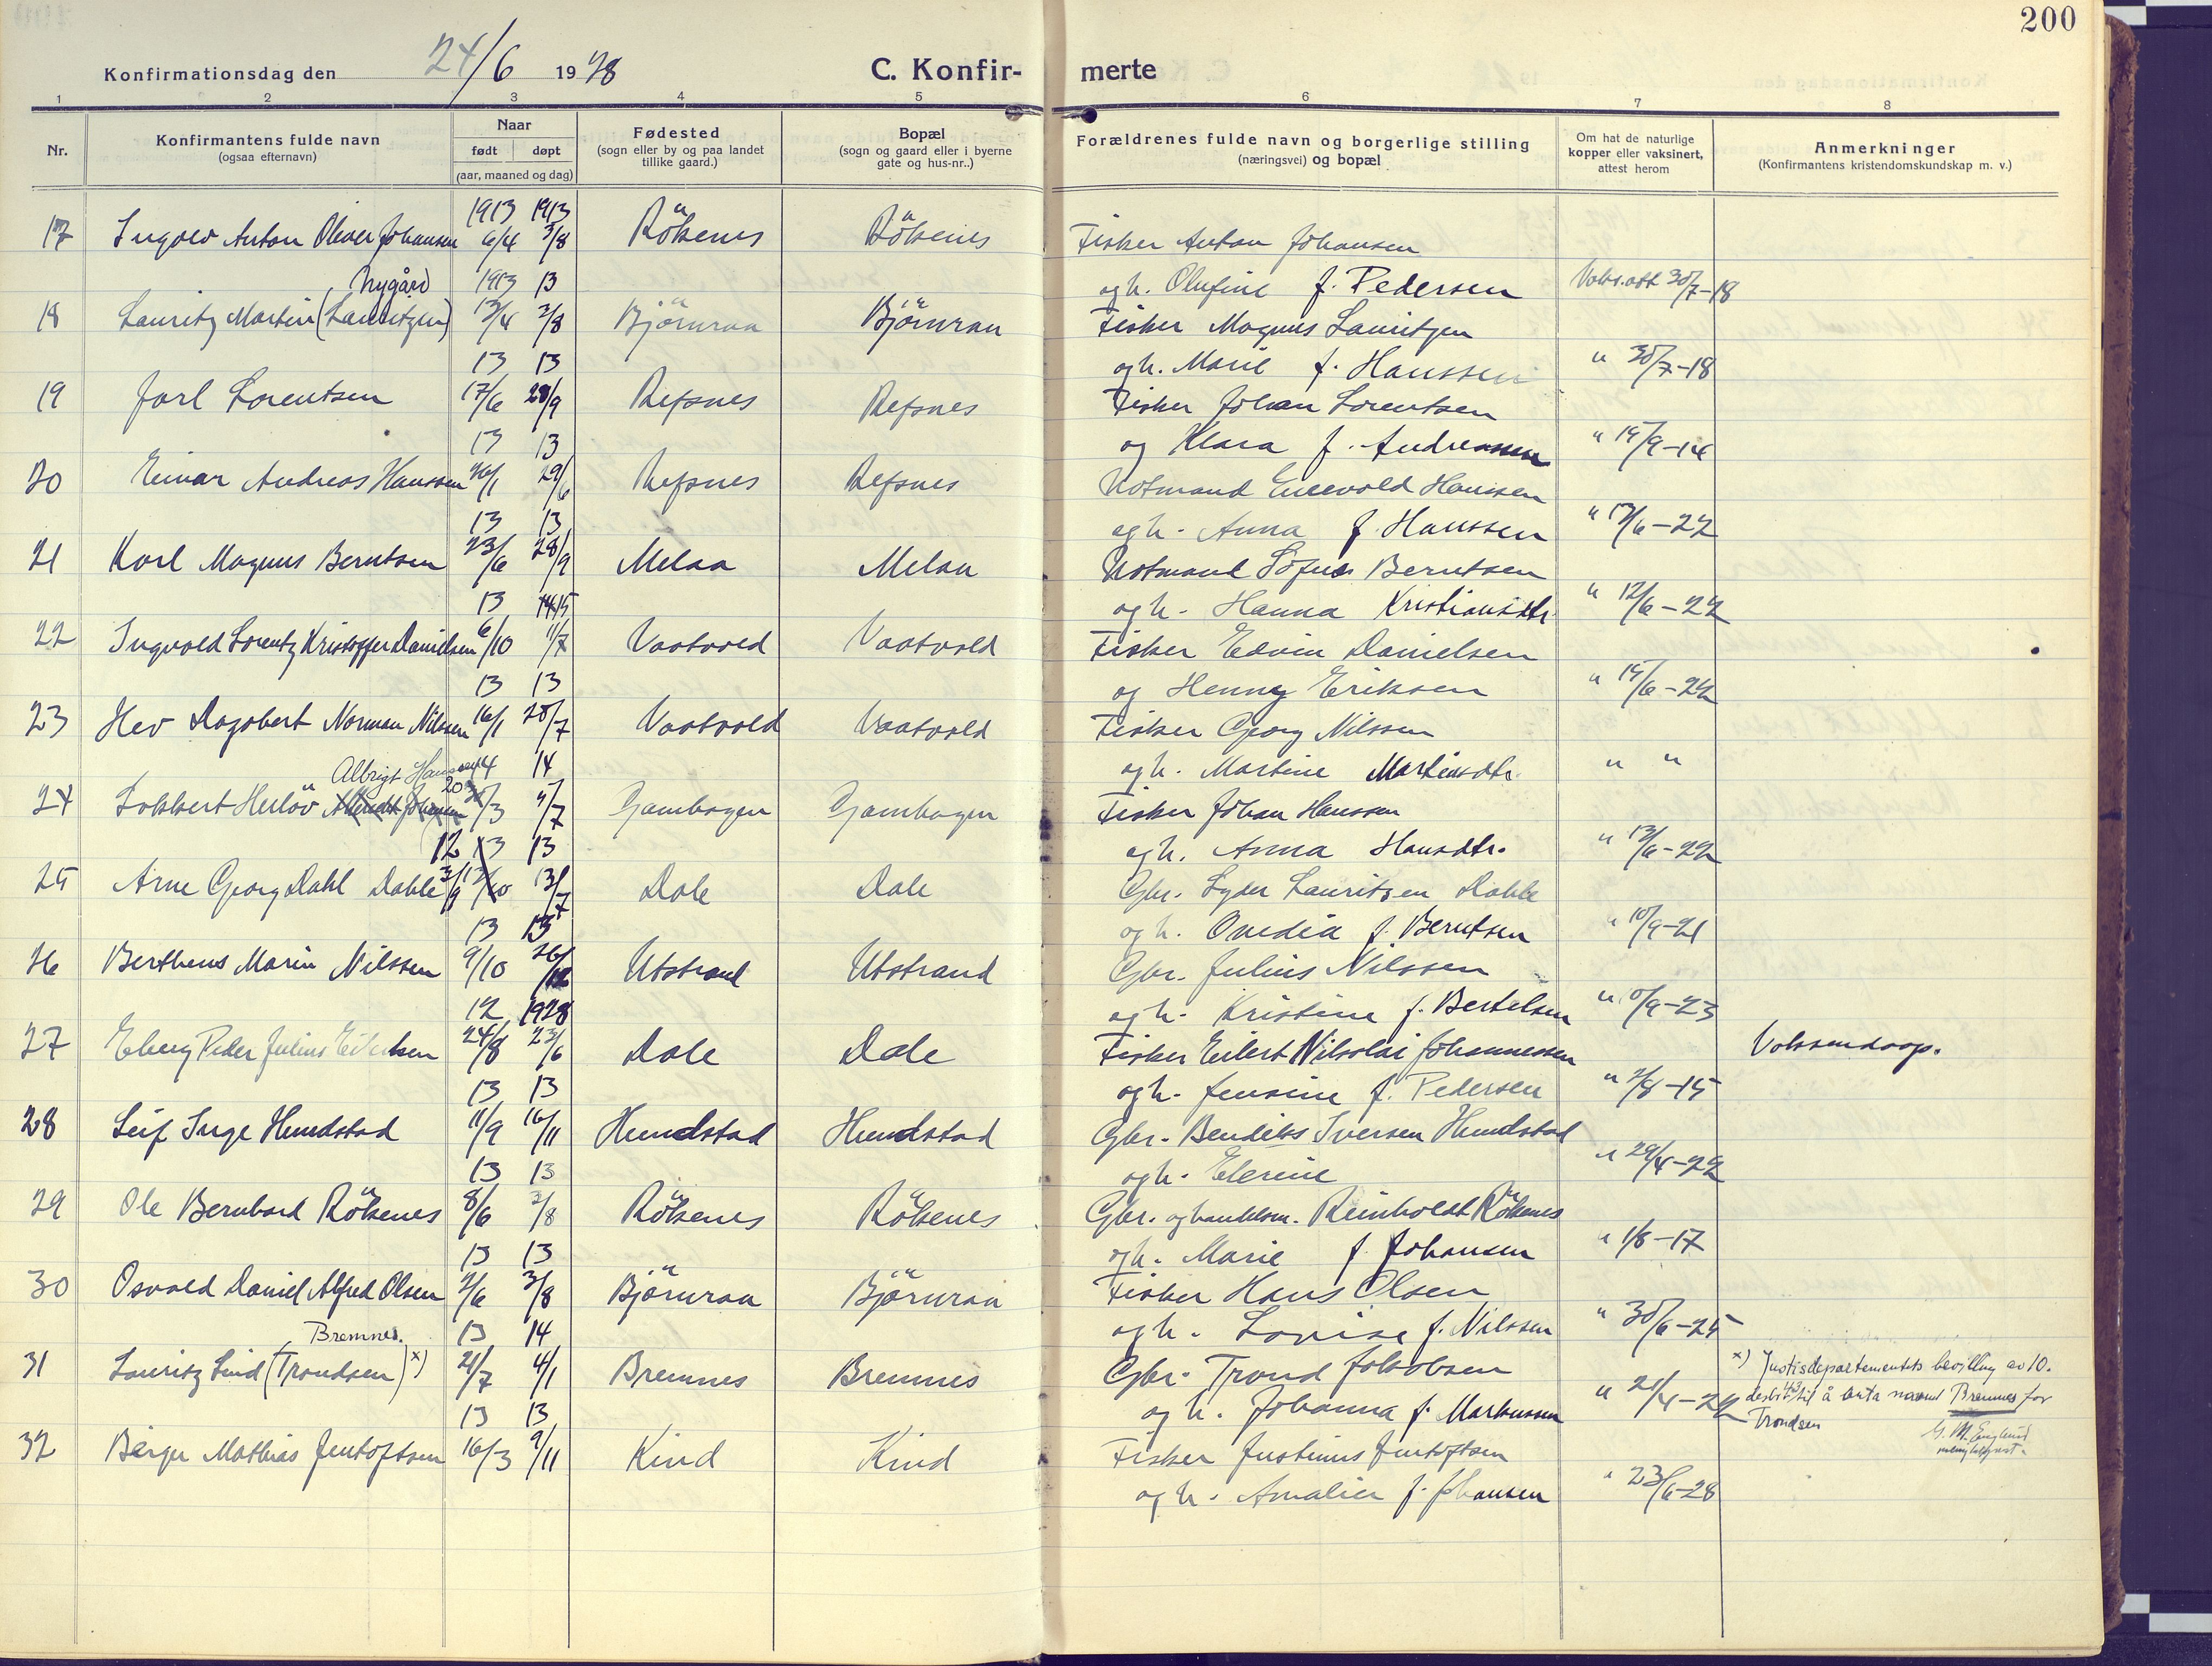 200
Konfirmationsdag den 24/6 1928 C. Konfir- merte
1 2 3 4 5 6 7 8
Nr. Konfirmantens fulde navn (ogsaa efternavn) Naar født døpt (aar, maaned og dag) Fødested (sogn eller by og paa landet tillike gaard.) Bopæl (sogn og gaard eller i byerne gate og hus-nr..) Forældrenes fulde navn og borgerlige stilling (næringsvei) og bopæl Om hat de naturlige kopper eller vaksinert, attest herom Anmerkninger (Konfirmantens kristendomskundskap m. v.)
1913 1913
17 Ingolv Anton Oliver Johansen 6/4 3/8 Rökenes Rökenes Fisker Anton Johansen
Nygård 1913 13 og h. Olufine f. Pedersen Vaks.att 30/7-18
18 Lauritz Martin (Lauritzen) 13/4 3/8 Björnraa Björnraa Fisker Magnus Lauritzen
13 13 og h. Marie f. Hanssen " 30/7-18
19 Jarl Lorentsen 17/6 28/9 Refsnes Refsnes Fisker Johan Lorentsen
13 13 og Klara f. Andreassen " 15/9-14
20 Einar Andreas Hanssen 26/1 29/6 Refsnes Refsnes Notmand Enevold Hanssen
13 13 og h. Anna f. Hanssen " 13/6-22
21 Karl Magnus Berntsen 23/6 28/9 Melaa Melaa Notmand Sofus Berntsen
13 15 og h. Hanna Kristiansdtr. " 12/6-22
22 Ingvald Lorentz Kristoffer Danielsen 6/10 11/7 Vaatvold Vaatvold Fisker Edvin Danielsen
13 13 og Henny Eriksen " 15/6-22
23 Hev Dagobert Norman Nilssen 16/1 20/7 Vaatvold Vaatvold Fisker Georg Nilssen
Albrigt Hanssen 14 14 og h. Martine Martinsdtr. " "
24 Lokkert Herlöv 20/3 5/7 Gambogen Gambogen Fisker Johan Hanssen
12 13 13 og h. Anna Hansdtr. " 13/6-22
25 Arne Georg Dahl Dahle 3/9 13/10 13/7 Dale Dale Gbr. Lyder Lauritsen Dahle
13 13 og h. Ovedia f. Berntsen " 10/9-21
26 Bertheus Marin Nilssen 9/10 26/12 Utstrand Utstrand Gbr. Julius Nilssen
12 1928 og h. Kristine f. Bertelsen " 10/9-23
27 Eberg Peder Julius Eilertsen 24/8 23/6 Dale Dale Fisker Eilert Nikolai Johannessen Voksendaap.
13 13 og h. Jensine f. Pedersen " 2/8-15
28 Leif Inge Hundstad 11/9 16/11 Hundstad Hundstad Gbr. Bendiks Iversen Hundstad
13 13 og h. Elerine " 29/4-22
29 Ole Bernhard Rökenes 8/6 3/8 Rökenes Rökenes Gbr. og handelsm. Reinholdt Rökenes
13 13 og h. Marie f. Johansen " 1/8-17
30 Osvald Daniel Alfred Olsen 2/6 3/8 Björnraa Björnraa Fisker Hans Olsen
Bremnes. 13 14 og h. Lovise f. Nilssen " 30/6-25
31 Lauritz Lind (Trondsen) x) 21/7 4/1 Bremnes Bremnes Gbr. Trond Jakobsen x) Justisdepartementets bevilling av 10.
13 13 og h. Johanna f. Markussen " 21/4-22 desbr. 43 til å anta navnet Bremnes for
Trondsen
32 Birger Mathias Jentoftsen 16/3 9/11 Kind Kind Fisker Justinus Jentoftsen G. M. Englund
og h. Amalie f. Johansen " 23/6-28